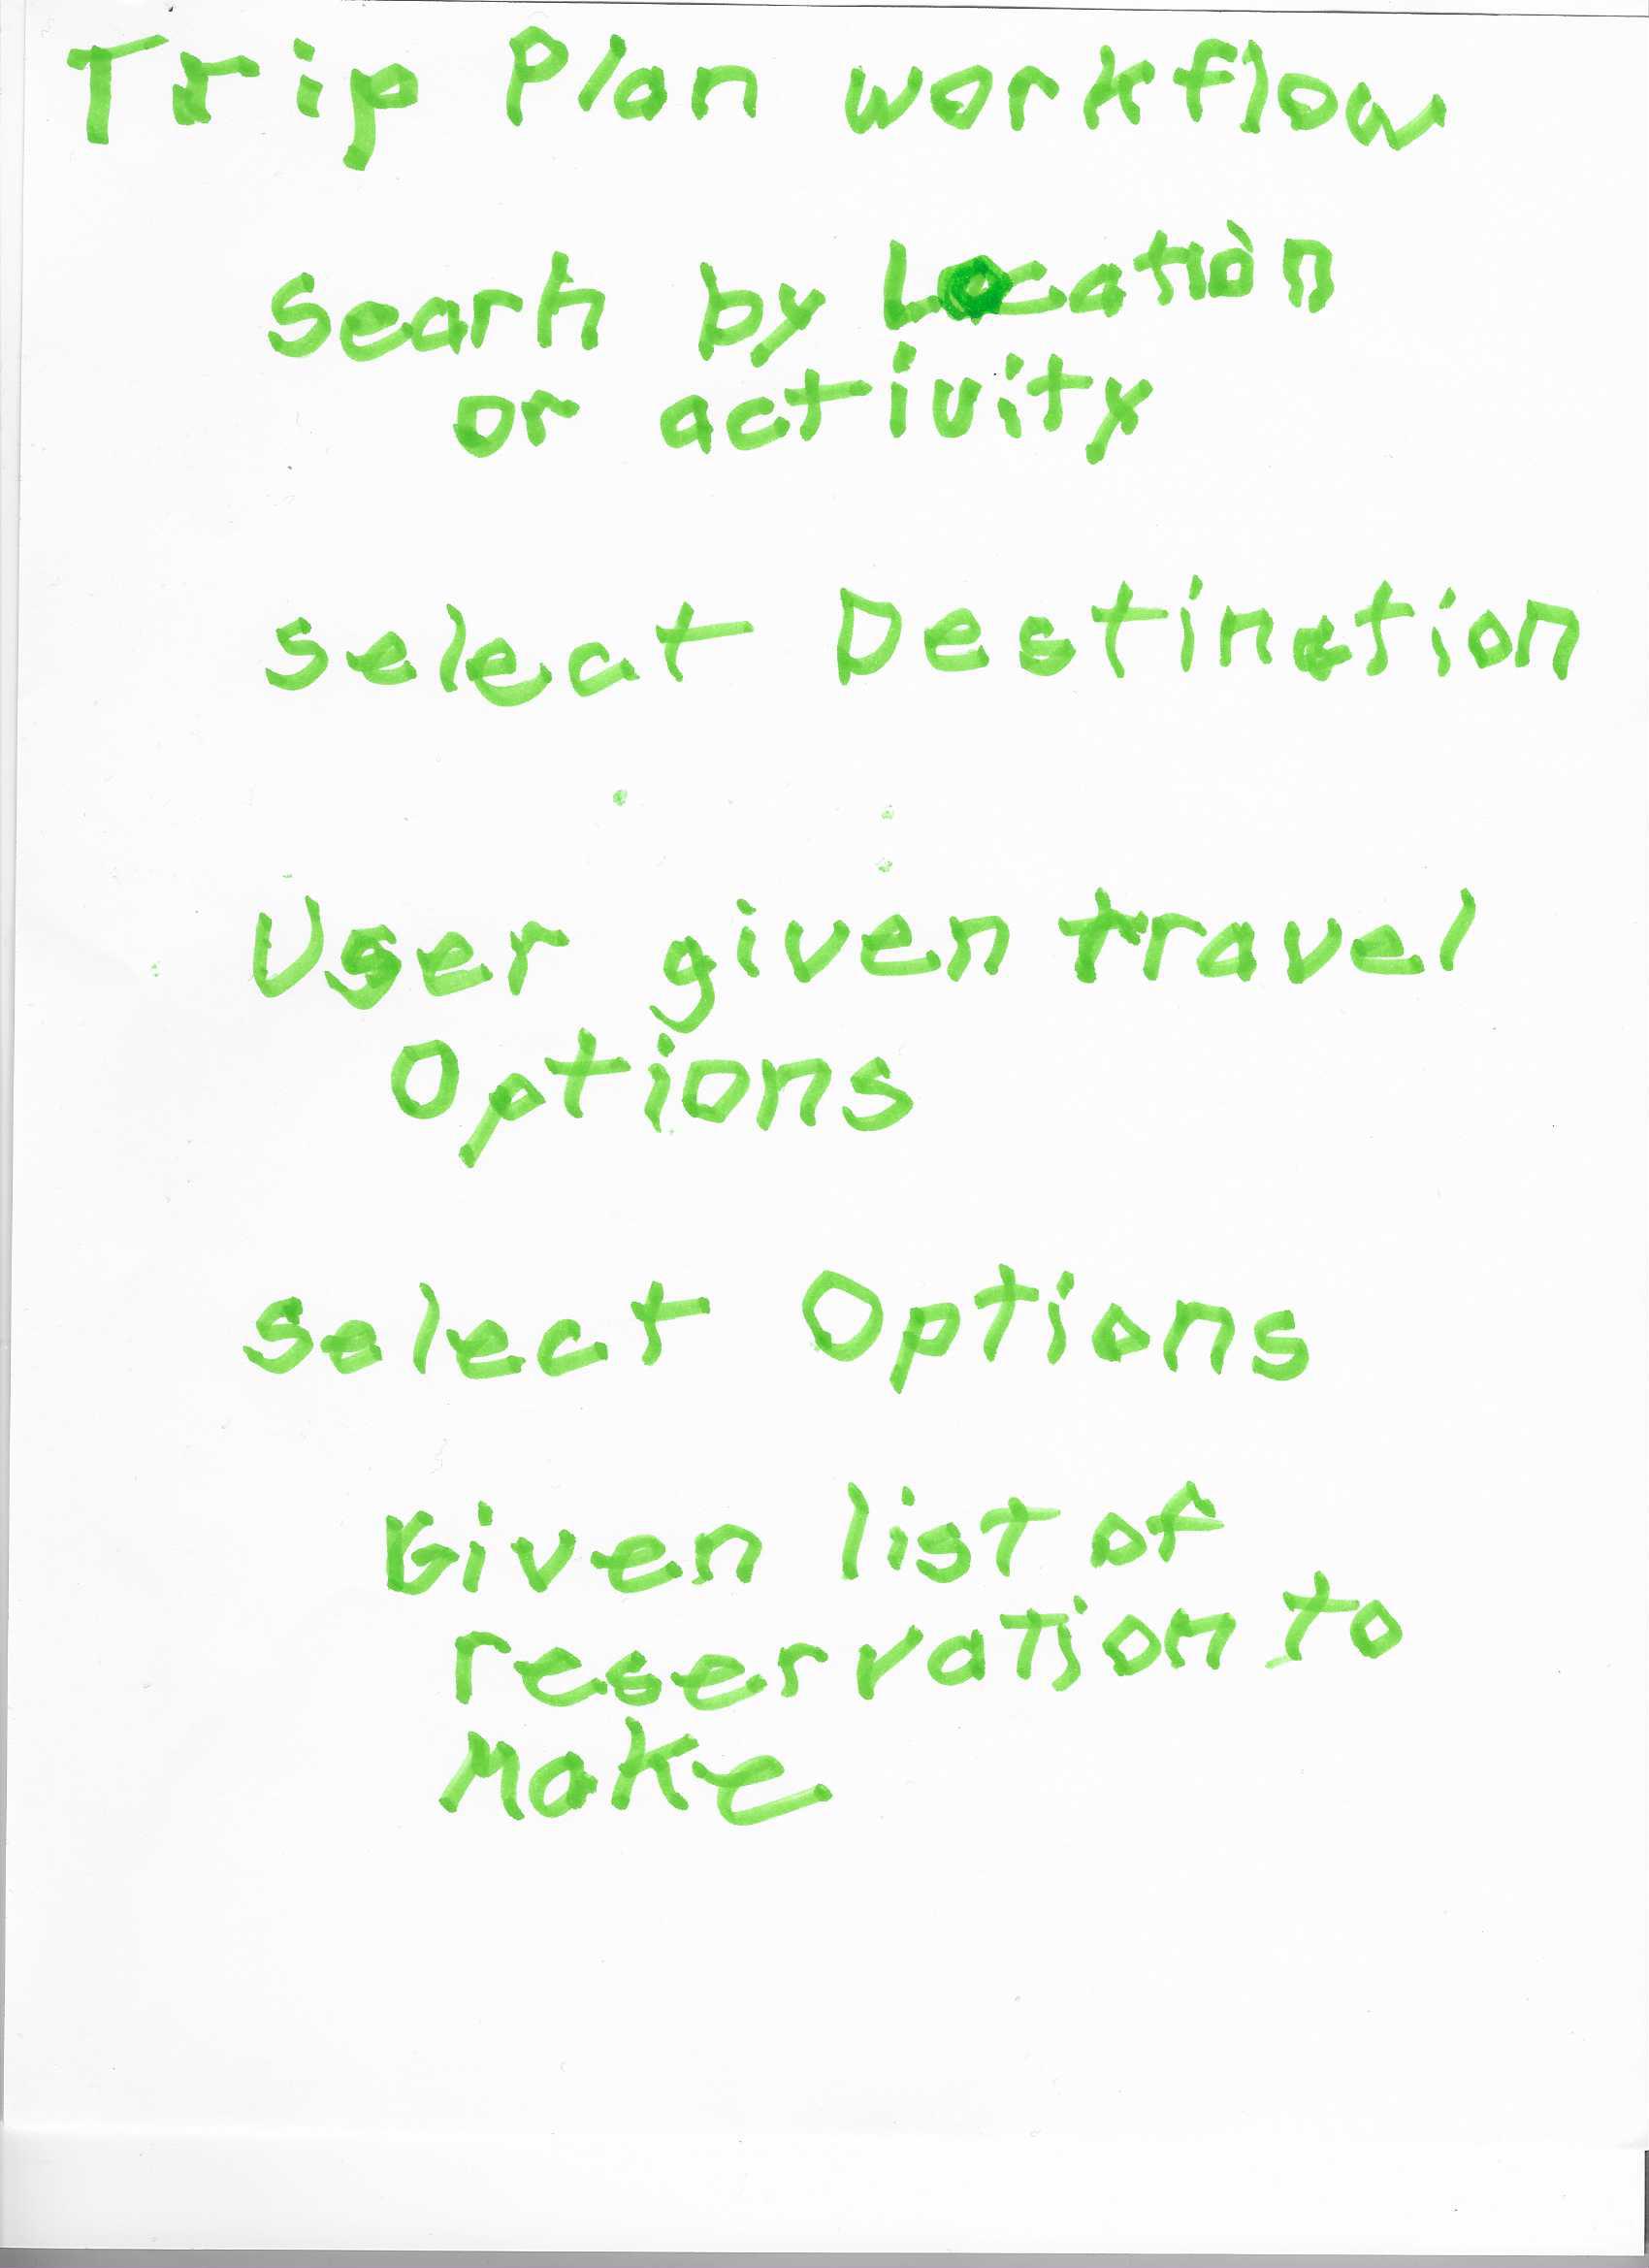 Trip Plan workflow
Searh by Location
or activity
select Destination
User given travel
Options
select Options
Given list of
reservation to
Make